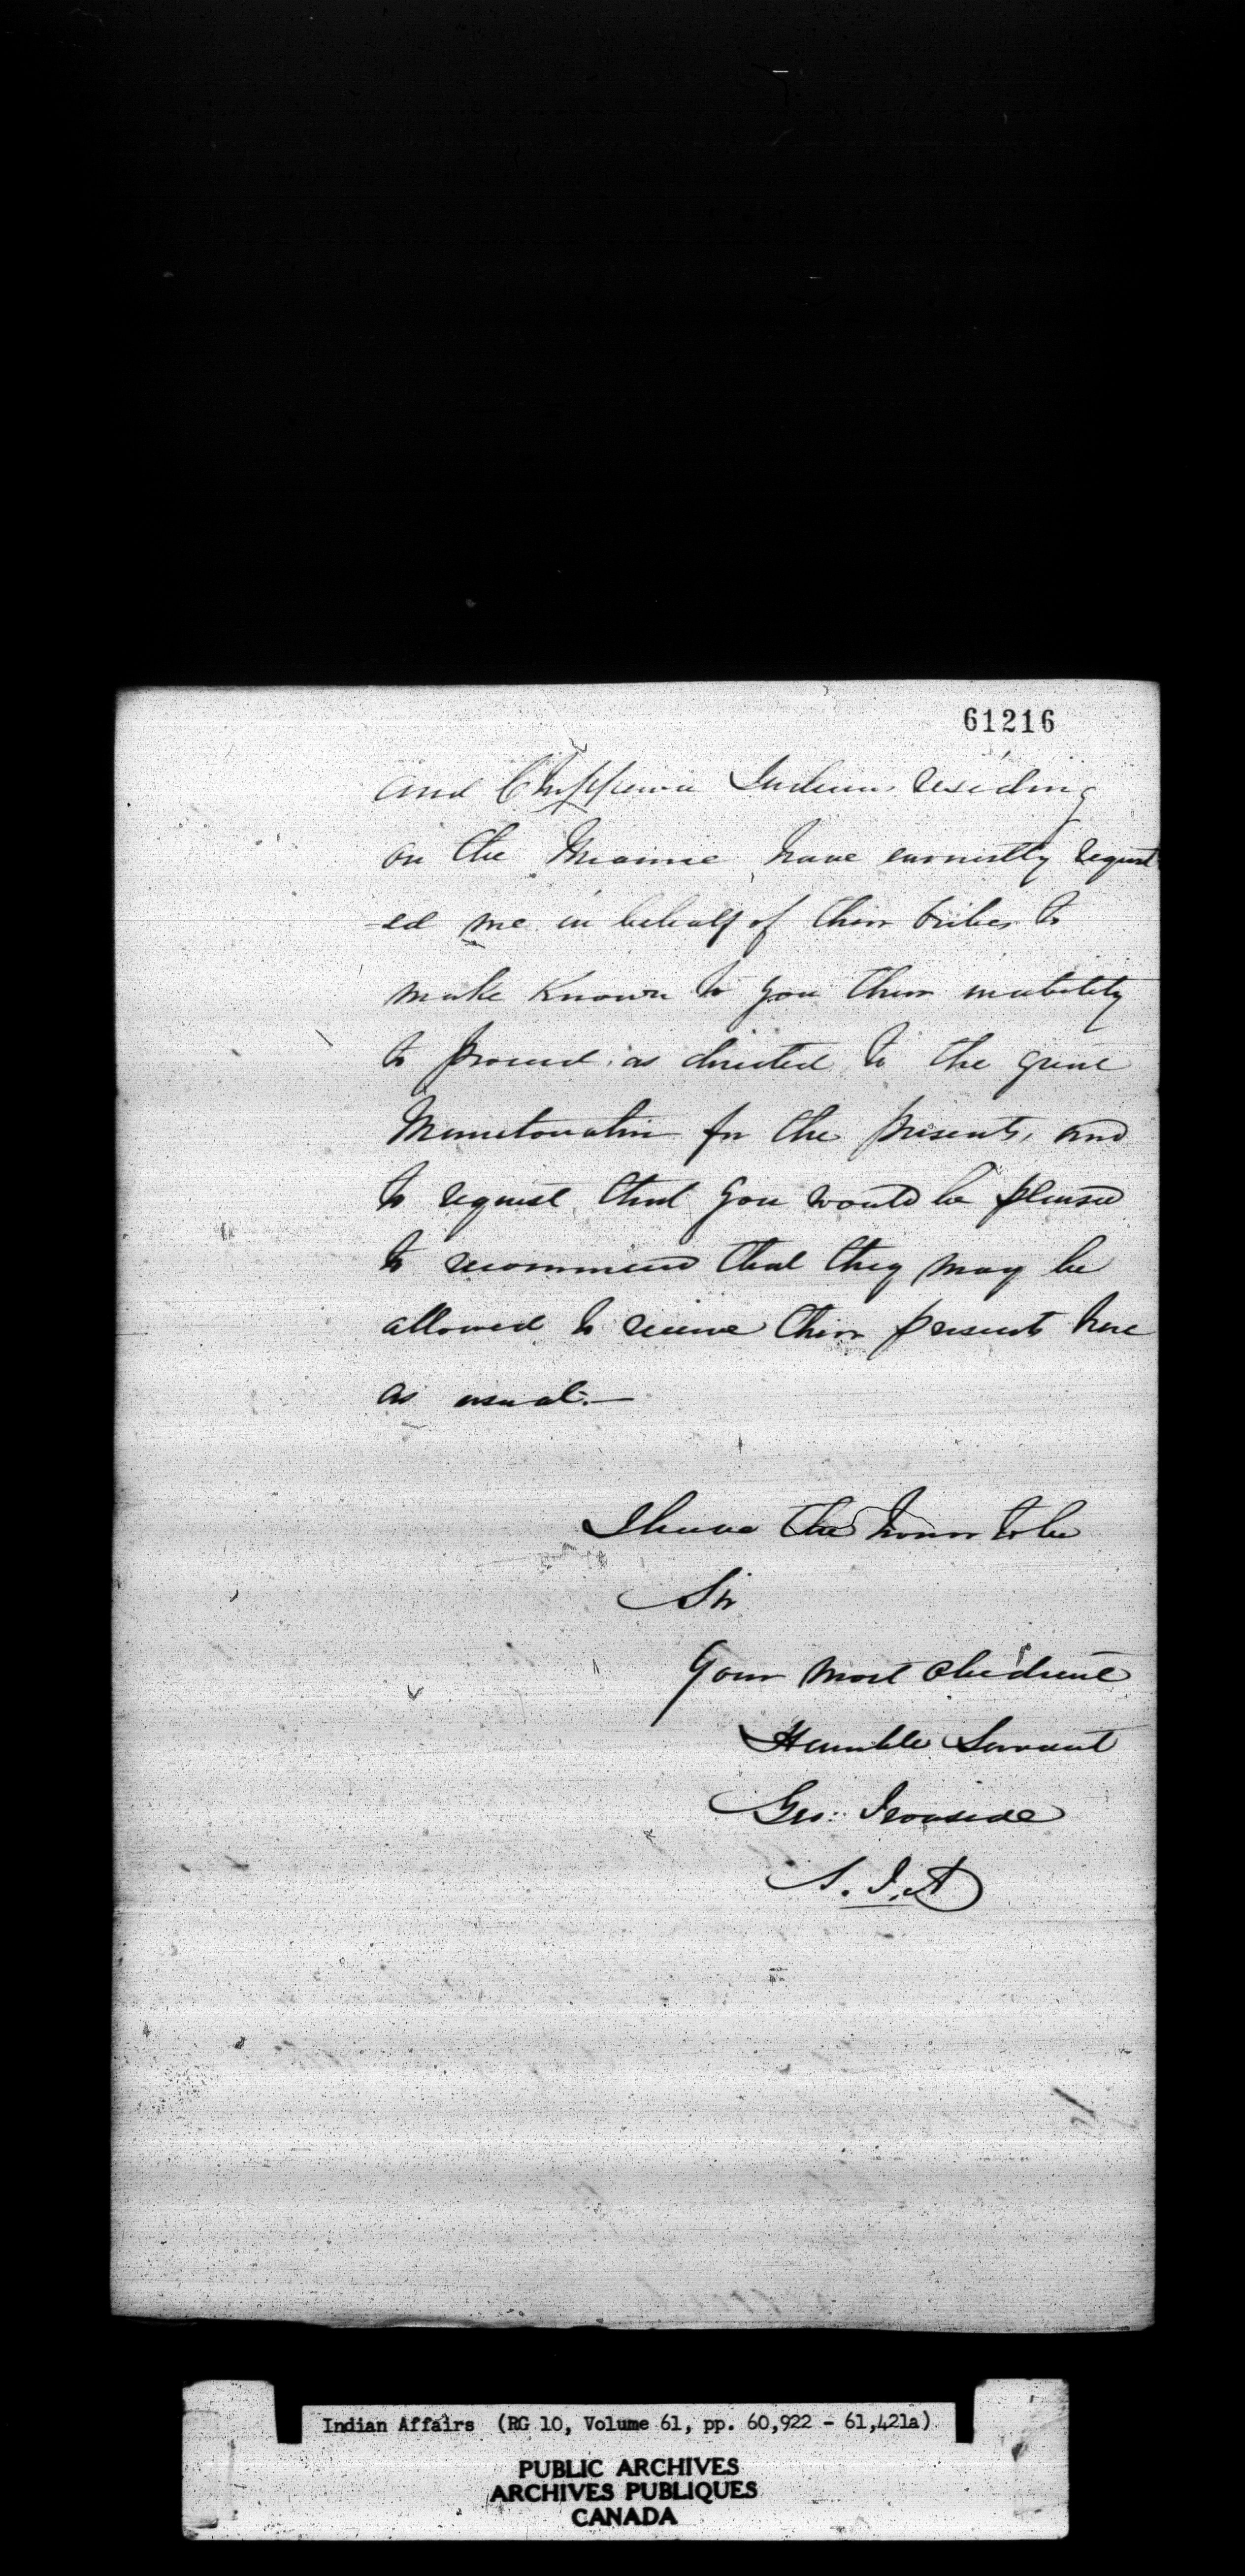 61216
and Chippewa Indians residing
on the Miamie have earnestly request
-ed me in behalf of their tribes to
make known to you their inability
to proceed as directed to the great
Manetoualin for the presents, and
to request that you would be pleased
to recommend that they may be
allowed to receive their presents here
as usual.—
I have the honor to be
Sir
Your most obedient
Humble Servant
Geo: Ironside
S. I. A
Indian Affairs (RG 10, Volume 61, pp. 60,922 - 61,421a)
PUBLIC ARCHIVES
ARCHIVES PUBLIQUES
CANADA